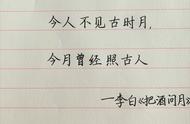 今人不见古时月,
今月曾经照古人
—李白《把酒问月》